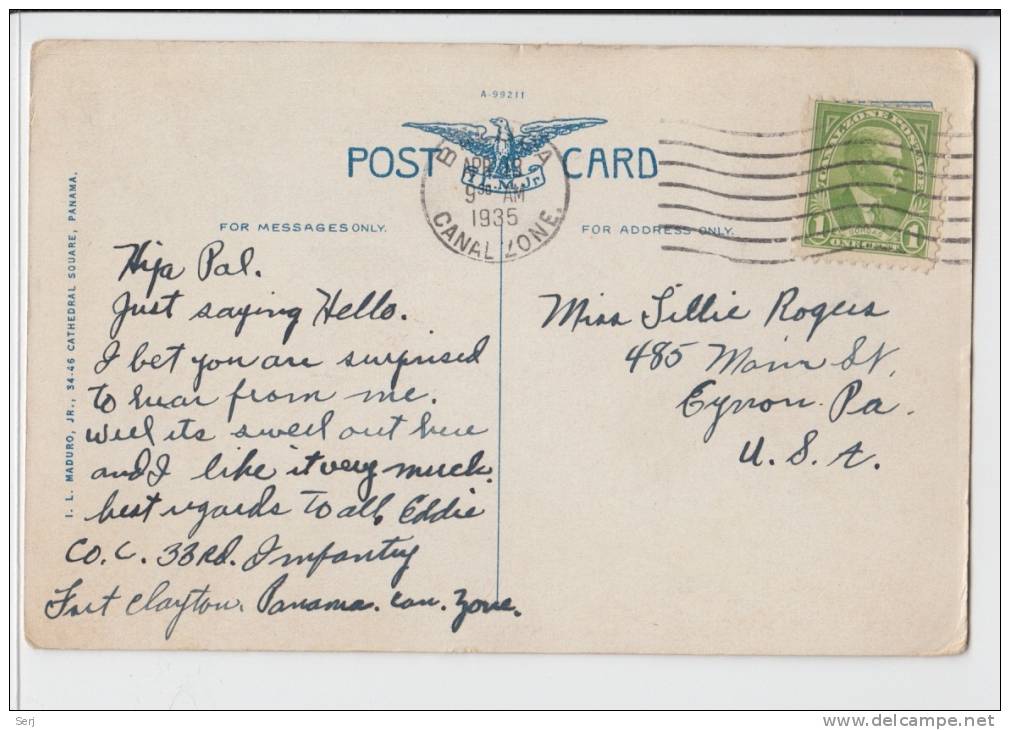 A-99211
POST CARD
I.L.M.Jr.
B A
APR 18
9 30 AM
1935
CANAL ZONE.
CANAL ZONE POSTAGE
1 ONE CENT 1
FOR MESSAGES ONLY.
FOR ADDRESS ONLY.
I. L. MADURO, JR., 34-46 CATHEDRAL SQUARE, PANAMA.
Hiya Pal.
Just saying Hello.
I bet you are surprised
to hear from me.
Well its swell out here
and I like it very much.
best regards to all, Eddie
Co. C. 33rd. Infantry
Fort Clayton. Panama. Can. Zone.
Miss Lillie Rogers
485 Main St.
Eynon Pa.
U. S. A.
Serj
www.delcampe.net